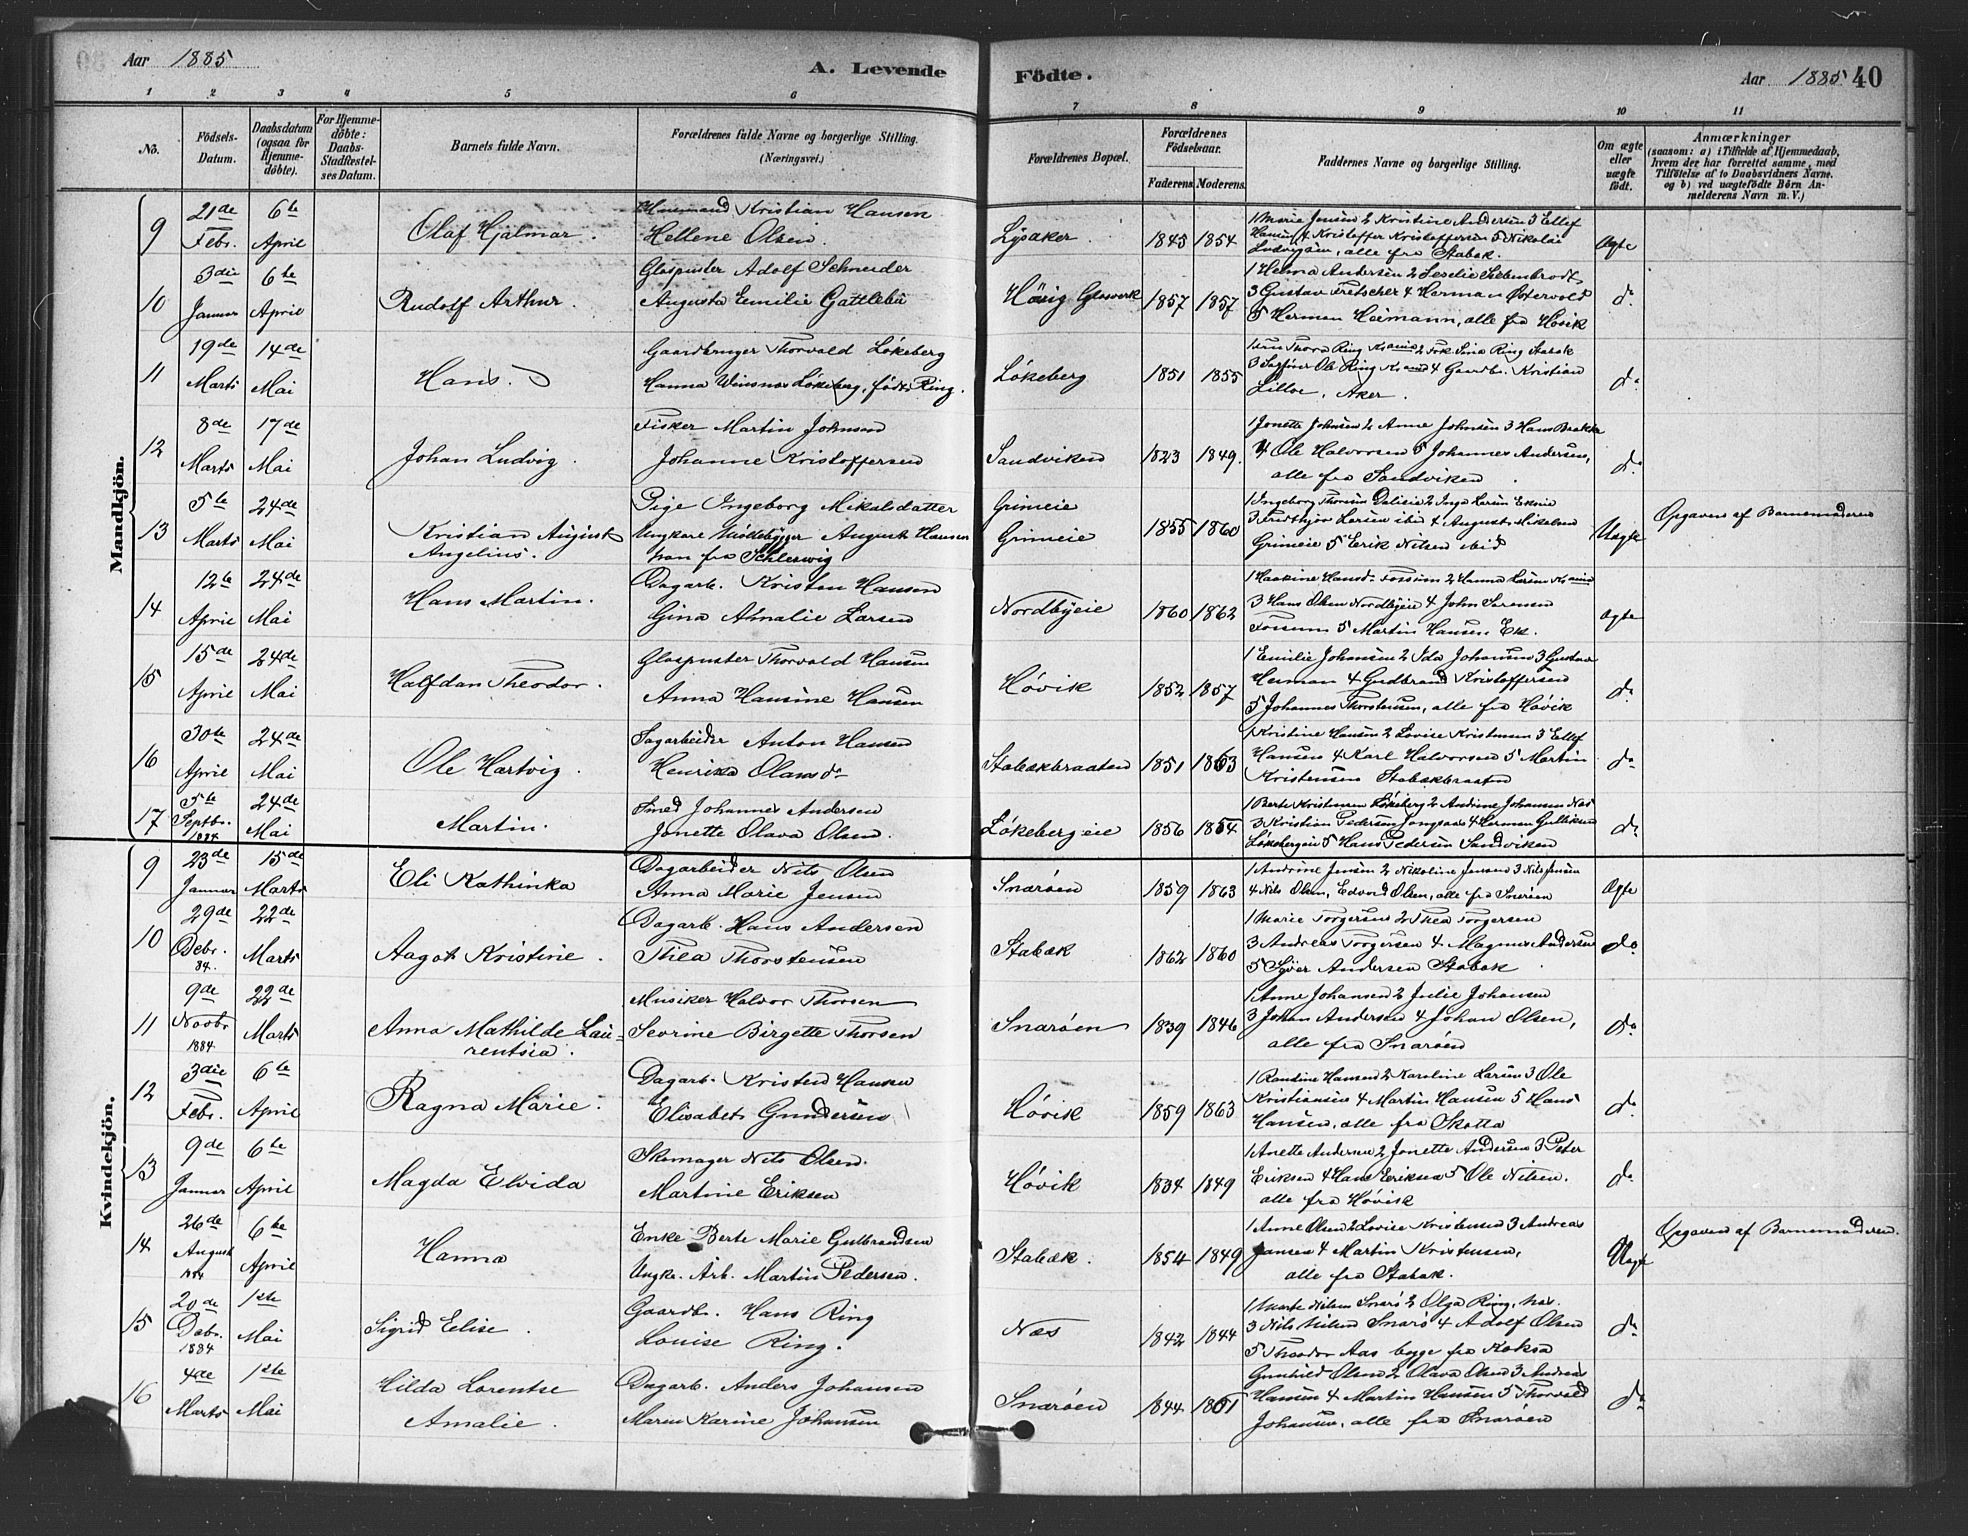 Aar 1885
A. Levende
Födte.
Aar 1885 40
1 2 3 4 5 6 7 8 9 10 11
No.
Födsels-Datum.
Daabsdatum (ogsaa for Hjemme-döbte).
For Hjemme-döbte: Daabs-Stadfæstel-ses Datum.
Barnets fulde Navn.
Forældrenes fulde Navne og borgerlige Stilling. (Næringsvei.)
Forældrenes Bopæl.
Forældrenes Födselsaar.
Faderens Moderens
Faddernes Navne og borgerlige Stilling.
Om ægte eller uægte födt.
Anmærkninger
(saasom: a) i Tilfælde af Hjemmedaab, hvem der har forrettet samme, med Tilföielse af to Daabsvidners Navne. og b) ved uægtefödte Börn An-melderens Navn m. V.)
Mandkjön.
9 21de Febr. 6te April Olaf Hjalmar. Kristian Hansen
Hellene Olsen. Lysaker. 1845 1854
1 Marie Jensen 2 Kristine Andersen 3 Ellef
Hansen 4 Kristoffer Kristoffersen 5 Nikolai
alle fra Stabæk. Ægte
10 3die Januar 6te April Rudolf Arthur. Glaspuster Adolf Schneider
Augusta Emilie Høvig Glasværk 1857 1857
1 Helma Andersen 2
3 Gustav Fretscher 4 Herman Østervold
5 Herman Heimann, alle fra Høvik do
11 19de Marts 14de Mai Hans. Gaardbruger Thorvald Løkeberg
Hanna Løkeberg, født Ring. Løkeberg 1851 1855
Thora Ring 2 Frk Sina Ring Stabæk
3 Ole Ring 4 Gaardbr. Kristian
Lilloe, Aker. do
12 8de Marts 17de Mai Johan Ludvig. Fisker Martin Johnsen
Johanne Kristoffersen Sandviken 1823 1849.
1 Jonette Johnsen 2 Anne Johnsen 3 Hans Bakke
4 Ole Halvorsen 5 Johannes Andersen,
alle fra Sandviken. do
13 5te Marts 24de Mai Kristian August
Angelius. Pige Ingeborg Mikalsdatter Grimeie
Ungkarl August Hansen Grimeie 1855 1860
han fra Schleswig
1 Ingeborg 2 Inga Larsen
3 Fredthjov Larsen ibid 4 August Mikelsen
Grimeie 5 Erik Nilsen ibid Uægte Opgaven af Barnemoderen
14 12te April 24de Mai Hans Martin. Dagarb. Kristen Hansen
Gina Amalie Larsen Nordbyeie 1860 1862
Fossum 2 Hanna Larsen
3 Hans Olsen Nordbyeie 4 John Sørensen
Fossum 5 Martin Hansen Ek. ægte
15 15de April 24de Mai Halfdan Theodor. Glaspuster Thorvald Hansen
Anna Hansine Hansen Høvik 1852 1857
1 Emilie Johansen 2 Ida Johansen 3 Gustav
Herman 4 Gudbrand Kristoffersen
5 Johannes Thorstensen, alle fra Høvik do
16 30te April 24de Mai Ole Hartvig. Sagarbeider Anton Hansen
Henrika Olausd. Stabækbraaten 1851 1863
1 Kristine Hansen 2 Lovise Kristensen 3 Ellef
Hansen 4 Karl Halvorsen 5 Martin
Kristensen Stabækbraaten do
17 5te Septbr. 1884 24de Mai Martin. Smed Johannes Andersen
Jonette Olava Olsen. Løkebergeie 1856 1854
1 Berte Kristensen Løkeberg 2 Andrine Johansen Næs
3 Kristian Pedersen 4 Herman Gulliksen
5 Hans Pedersen Sandviken do
Kvindekjön.
9 23de Januar 15de Marts Eli Kathinka Dagarbeider Nils Olsen
Anna Marie Jensen Snarøen 1859 1863
1 Andrine Jensen 2 Nikoline Jensen 3 Nils Jensen
4 Nils Olsen, Edvard Olsen, alle fra Snarøen Ægte
10 29de Debr. 84. 22de Marts Aagot Kristine. Dagarb. Hans Andersen
Thea Thorstensen Stabæk 1862 1860
1 Marie Torgersen 2 Thea Torgersen
3 Andreas Torgersen 4 Magnus Andersen
5 Syver Andersen Stabæk do
11 9de Novbr 1884 22de Marts Anna Mathilde Lau-
rentsia. Musiker Halvor Thorsen
Severine Birgette Thorsen Snarøen 1839 1846
1 Anne Johansen 2 Julie Johansen
3 Johan Andersen 4 Johan Olsen,
alle fra Snarøen do
12 3die Febr. 6te April Ragna Marie. Dagarb. Kristen Hansen
Elisabet Gundersen Høvik 1859 1863
1 Randine Hansen 2 Karoline Larsen 3 Ole
Kristiansen 4 Martin Hansen 5 Hans
Hansen, alle fra Skotta do
13 9de Januar 6te April Magda Elvida Skomager Nils Olsen.
Martine Eriksen Høvik 1834 1849
1 Anette Andersen 2 Jonette Andersen 3 Peter
Eriksen 4 Hans Eriksen 5 Ole Nilsen.
alle fra Høvik do
14 26de August 1884 6te April Hanna Enke Berte Marie Gulbrandsen
Ungk. Arb. Martin Pedersen. Stabæk. 1854 1849
1 Anne Olsen 2 Lovise Kristensen 3 Andreas
Jansen 4 Martin Kristensen,
alle fra Stabæk. Uægte Opgaven af Barnemoderen.
15 20de Debr. 1884 1ste Mai Sigrid Elise. Gaardbr. Hans Ring
Louise Ring. Næs 1842 1844
1 Marte Nilsen Snarø 2 Olga Ring, Næs.
3 Nils Nilsen Snarø 4 Adolf Olsen
5 Theodor Aas begge fra Koksa do
16 4de Marts 1ste Mai Hilda Lorentse
Amalie. Dagarb. Anders Johansen
Maren Karine Johansen Snarøen 1844 1861
Gunhild Olsen 2 Olava Olsen 3 Andreas
Hansen 4 Martin Hansen 5 Thorvald
Johansen, alle fra Snarøen do